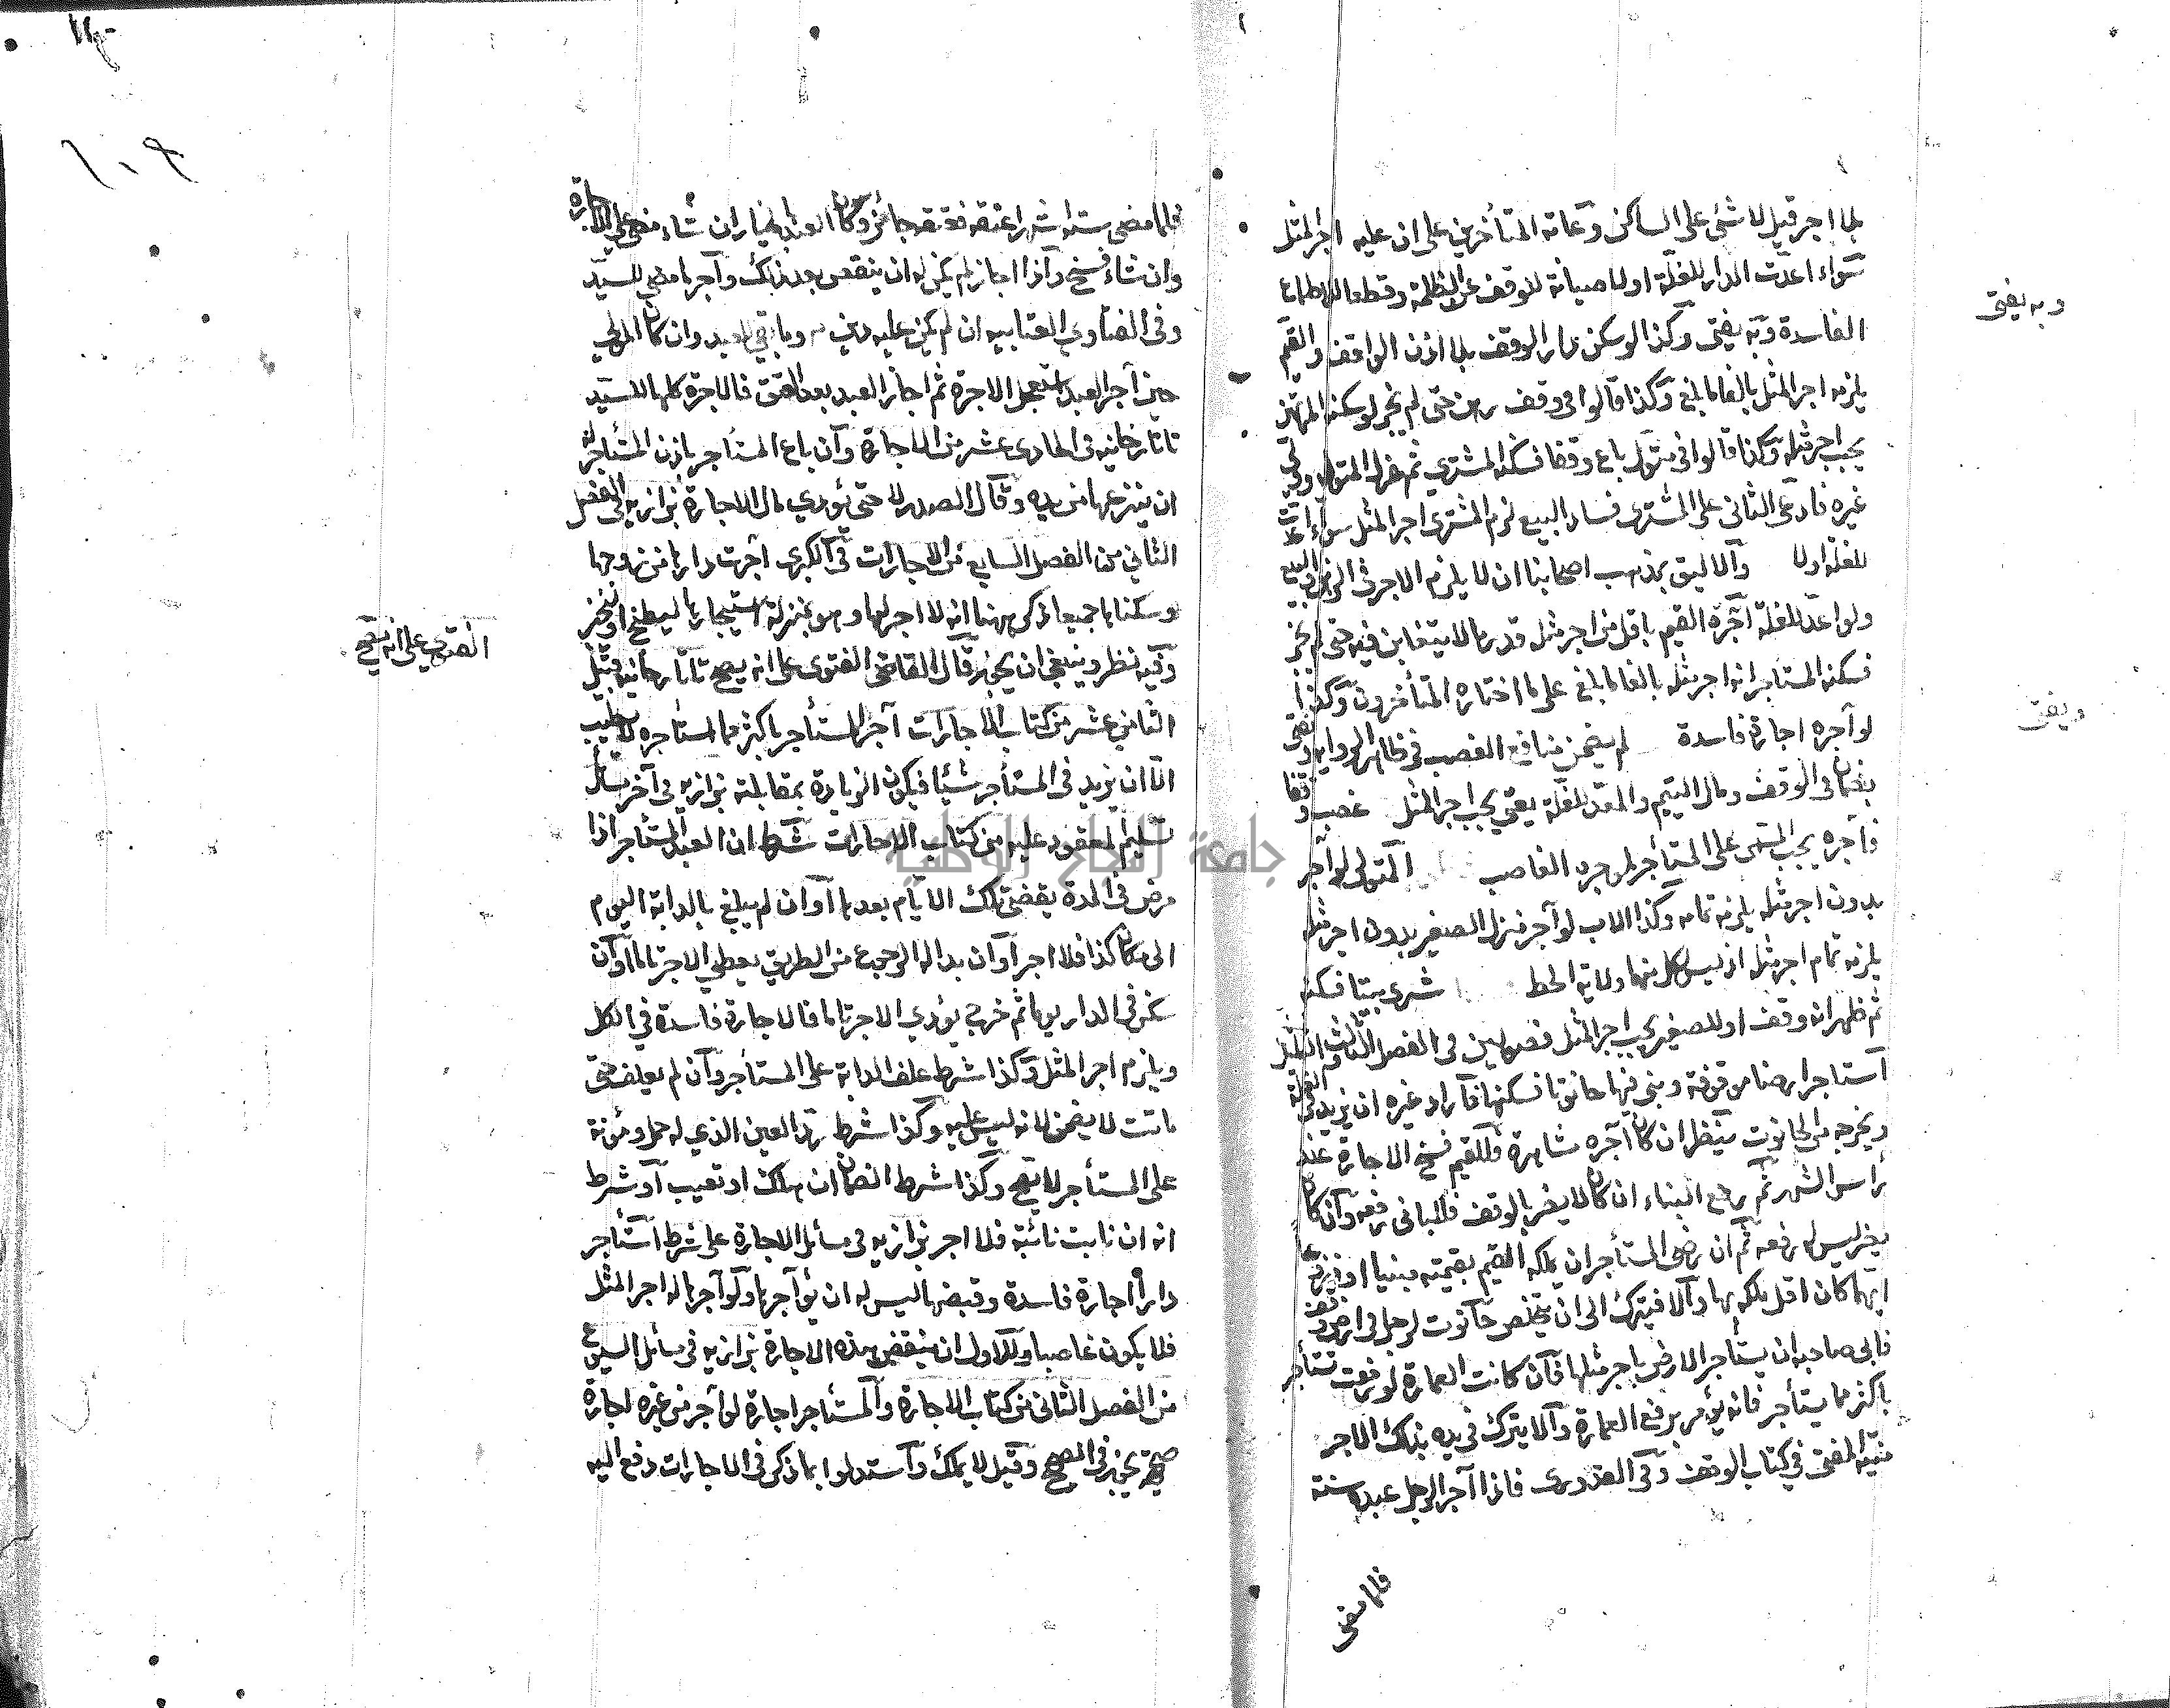 بلا اجر قيل لا شئ على الساكن وعامة المتأخرين على ان عليه اجر المثل
سواء اعدت الدار للغلة اولا صيانة للوقف عن الظلمة وقطعا للاطماع
الفاسدة وبه يفتى وكذا لو سكن دار الوقف بلا اذن الواقف والقيم
يلزمه اجر المثل بالغا ما بلغ وكذا قالوا في وقف رهن حتى لم يجز لو سكنه المرتهن
يجب اجر مثله وكذا قالوا في متول باع وقفا فسكنه المشتري ثم عزل المتولي وولي
غيره فادعى الثاني على المشترى فساد البيع لزم المشترى اجر المثل سواء اعدت
للغلة اولا والاليق بمذهب اصحابنا ان لا يلزم الاجر في الرهن والبيع
ولو اعد للغلة آجره القيم باقل من اجر مثله قدر ما لا يتغابن فيه حتى لم يجز
فسكنه المستاجر انه اجر مثله بالغا ما بلغ على ما اختاره المتأخرون وكذا
لو آجره اجارة فاسدة لم يضمن منافع الغصب في ظاهر الرواية ويفتى
بضمان الوقف ومال اليتيم والمعد للغلة يعني يجب اجر المثل غصب وقفا
فآجره يجب المسمى على المستأجر لموجره الغاصب المتولى لو آجر
بدون اجر مثله يلزمه تمامه وكذا الاب لو آجر منزل الصغير بدون اجر مثله
يلزمه تمام اجر مثله اذ ليس لكل منهما ولاية الحط شرى بيتا فسكنه
ثم ظهر انه وقف او للصغير يجب اجر المثل فصولين في الفصل الثالث والثلثين
استاجر ارضا موقوفة وبنى فيها حانوتا فسكنها فاراد غيره ان يزيد في الغلة
ويخرجه من الحانوت ينظر ان كان آجره مشاهرة فللقيم فسخ الاجارة عند
رأس الشهر ثم رفع البناء ان كان لا يضر بالوقف فللبانى رفعه وان كان
يضر ليس له رفعه ثم ان رضى المستأجر ان يملكه القيم بقيمته مبنيا او منزوعا
ايهما كان اقل يملكه بها والا فيترك الى ان يتخلص حانوت لرجل في ارض وقف
فابى صاحبه ان يستأجر الارض باجر مثلها فان كانت العمارة لو رفعت تستأجر
باكثر مما يستأجر فانه يؤمر برفع العمارة والا يترك في يده بذلك الاجر
منية المفتى في كتاب الوقف وفي القدورى فاذا آجر الرجل عبده سنة
فلما مضى
وبه يفتى
ويفتى
فلما مضى ستة اشهر اعتقه فعتقه جائز وكان العبد بالخيار ان شاء مضى على الاجارة
وان شاء فسخ واذا اجاز لم يكن له ان ينقض بعد ذلك وآجر ما مضى للسيد
وفي الفتاوي العتابيه ان لم يكن عليه دين وما بقي للعبد وان كان المولى
حين آجر العبد استعجل الاجرة ثم اجاز العبد بعد العتق فالاجرة كلها للسيد
تاتارخانيه في الحادى عشر من الاجارة وان باع المستأجر باذن المستأجر له
ان ينزعها من يده وقال الصدر لا حتى يؤدي مال الاجارة بزازيه في الفصل
الثاني من الفصل السابع من الاجارات في الكبرى آجرت دارها من زوجها
وسكناها جميعا ذكر ههنا انه لا اجر لها وهو بمنزلة استيجارها ليطبخ او يخبز
وفيه نظر وينبغي ان يجوز قال القاضى الفتوى على انه يصح تاتارخانيه قبيل
الثامن عشر من كتاب الاجارات آجر المستأجر باكثر مما استأجره لا يطيب
الا ان يزيد في المستأجر شيئا فيكون الزيادة بمقابلته بزازيه في آخر مسائل
تسليم المعقود عليه من كتاب الاجارات شرط ان العبد المستأجر اذا
مرض في المدة يقضى تلك الايام بعدها او ان لم يبلغ بالدابة اليوم
الى مكان كذا فلا اجر او ان بدا له الرجوع من الطريق يعطي الاجر تاما او ان
سكن في الدار يوما ثم خرج يؤدي الاجر تاما فالاجارة فاسدة في الكل
ويلزم اجر المثل وكذا شرط علف الدابة على المستأجر وان لم يعلف حتى
ماتت لا يضمن لانه ليس عليه وكذا شرط رد العين الذي له حمل ومؤنة
على المستأجر لا يصح وكذا شرط الضمان ان هلك او تعيب او شرط
انه ان نابت نائبة فلا اجر بزازيه في مسائل الاجارة على شرط استأجر
دارا اجارة فاسدة وقبضها ليس له ان يؤآجرها ولو آجرها له اجر المثل
فلا يكون غاصبا وللاول ان ينقض هذه الاجارة بزازيه في مسائل الشيوع
من الفصل الثانى من كتاب الاجارة والمستأجر اجارة لو آجر من غيره اجارة
صحيحة يجوز في الصحيح وقيل لا يملك واستدلوا بما ذكر في الاجارات دفع اليه
الفتوي على انه يصح
١٠٩
جامعة النجاح الوطنية